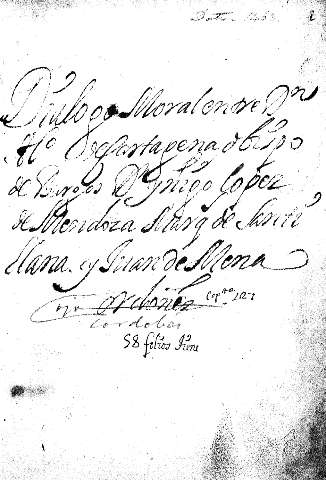 Dialogo Moral entre Dn
Alº de Cartagena obispo
de Burgos Dn Yñigo Lopez
de Mendoza Marq de Santi
llana. y Juan de Mena
Cordobes
58 folios